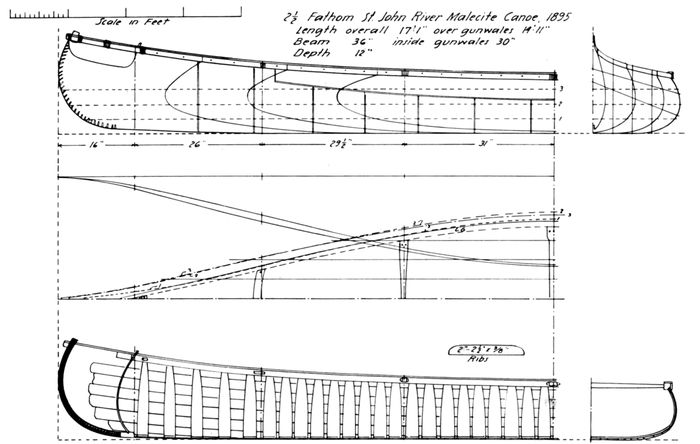 Scale in Feet
2½ Fathom St. John River Malecite Canoe, 1895
Length overall 17'1" over gunwales 14'11"
Beam 36" inside gunwales 30"
Depth 12"
3
2
1
16" 26" 29½" 31"
2
1
3
2"-2½" x ⅜"
Ribs